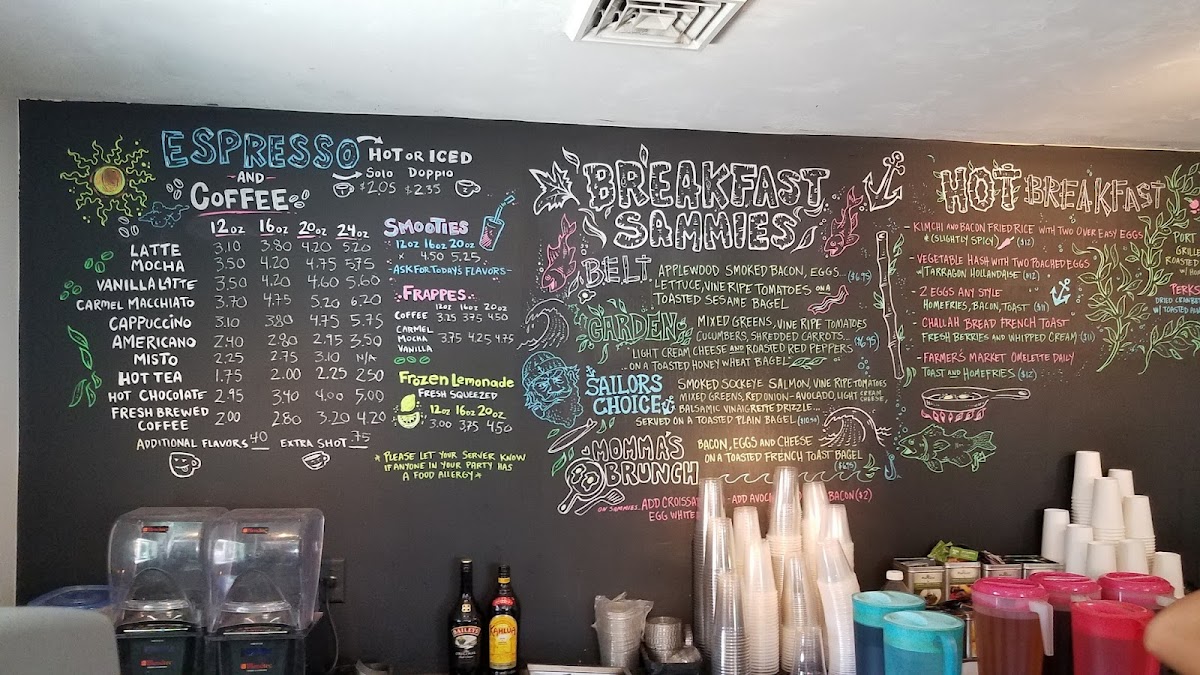 ESPRESSO
AND
COFFEE
HOT OR ICED
Solo Doppio
$2.05 $2.35
12oz 16oz 20oz 24oz
LATTE 3.10 3.80 4.20 5.20
MOCHA 3.50 4.20 4.75 5.75
VANILLA LATTE 3.50 4.20 4.60 5.60
CARMEL MACCHIATO 3.70 4.75 5.20 6.20
CAPPUCCINO 3.10 3.80 4.75 5.75
AMERICANO 2.40 2.80 2.95 3.50
MISTO 2.25 2.75 3.10 N/A
HOT TEA 1.75 2.00 2.25 2.50
HOT CHOCOLATE 2.95 3.40 4.00 5.00
FRESH BREWED COFFEE 2.00 2.80 3.20 4.20
ADDITIONAL FLAVORS .40 EXTRA SHOT .75
SMOOTIES
12oz 16oz 20oz
× 4.50 5.25
-ASK FOR TODAY'S FLAVORS-
FRAPPES
12oz 16oz 20oz
COFFEE 3.25 3.75 4.50
CARMEL
MOCHA 3.75 4.25 4.75
VANILLA
FROZEN LEMONADE
FRESH SQUEEZED
12oz 16oz 20oz
3.00 3.75 4.50
*PLEASE LET YOUR SERVER KNOW
IF ANYONE IN YOUR PARTY HAS
A FOOD ALLERGY*
BREAKFAST
SAMMIES
BELT APPLEWOOD SMOKED BACON, EGGS... ($6.95)
LETTUCE, VINE RIPE TOMATOES ON A
TOASTED SESAME BAGEL
GARDEN MIXED GREENS, VINE RIPE TOMATOES
CUCUMBERS, SHREDDED CARROTS... $6.95
LIGHT CREAM CHEESE AND ROASTED RED PEPPERS
...ON A TOASTED HONEY WHEAT BAGEL
SAILORS CHOICE SMOKED SOCKEYE SALMON, VINE RIPE TOMATOES
MIXED GREENS, RED ONION - AVOCADO, LIGHT CREAM CHEESE,
BALSAMIC VINAIGRETTE DRIZZLE...
SERVED ON A TOASTED PLAIN BAGEL ($10.50)
MOMMA'S BRUNCH BACON, EGGS AND CHEESE
ON A TOASTED FRENCH TOAST BAGEL
($6.95)
ON SAMMIES... ADD CROISSA - ADD AVOC BACON ($2)
EGG WHITE
HOT BREAKFAST
- KIMCHI AND BACON FRIED RICE WITH TWO OVER EASY EGGS
*(SLIGHTLY SPICY) ($12)
- VEGETABLE HASH WITH TWO POACHED EGGS
W/TARRAGON HOLLANDAISE ($12)
- 2 EGGS ANY STYLE
HOMEFRIES, BACON, TOAST ($11)
- CHALLAH BREAD FRENCH TOAST
FRESH BERRIES AND WHIPPED CREAM ($11)
- FARMER'S MARKET OMELETTE DAILY
TOAST AND HOMEFRIES ($12)
PORT
GRILLE
ROASTED
PERKS
DRIED CRANB
W/ TOASTED
BAILEYS
KAHLUA